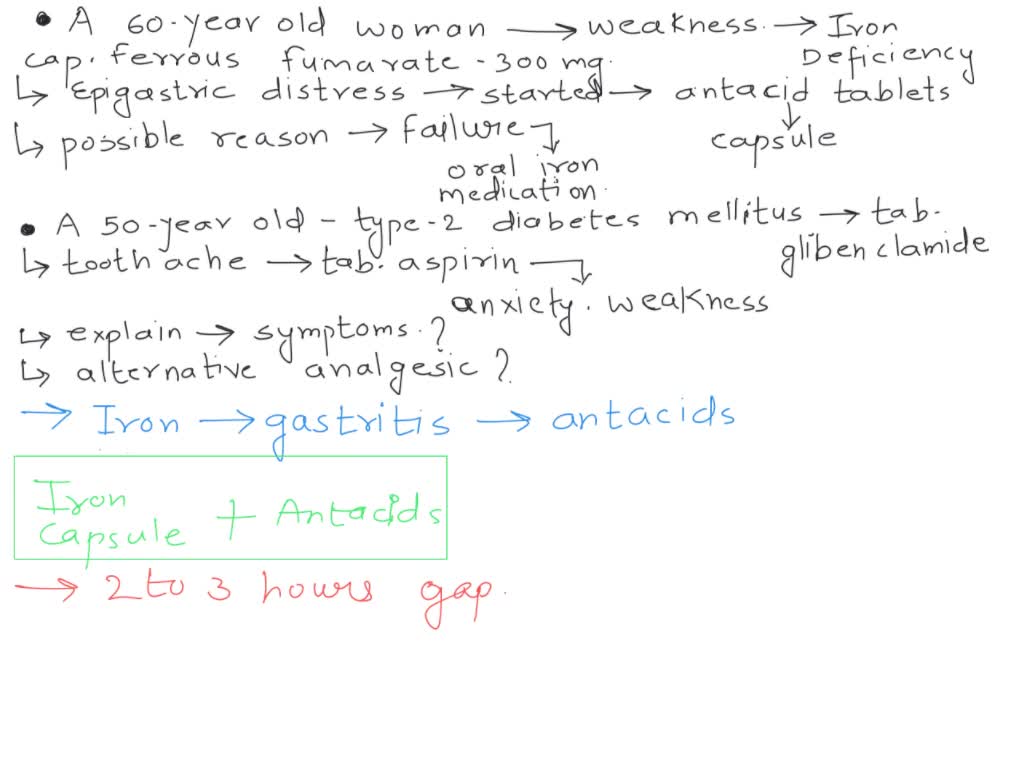 • A 60-year old woman → weakness. → Iron Deficiency
cap. ferrous fumarate - 300 mg.
↳ Epigastric distress → started → antacid tablets
↳ possible reason → failure ↴ capsule
oral iron
medication.
• A 50-year old - type-2 diabetes mellitus → tab. glibenclamide
↳ tooth ache → tab. aspirin ↴
anxiety. weakness
↳ explain → symptoms.?
↳ alternative analgesic?
→ Iron → gastritis → antacids
Iron capsule + Antacids
→ 2 to 3 hours gap.